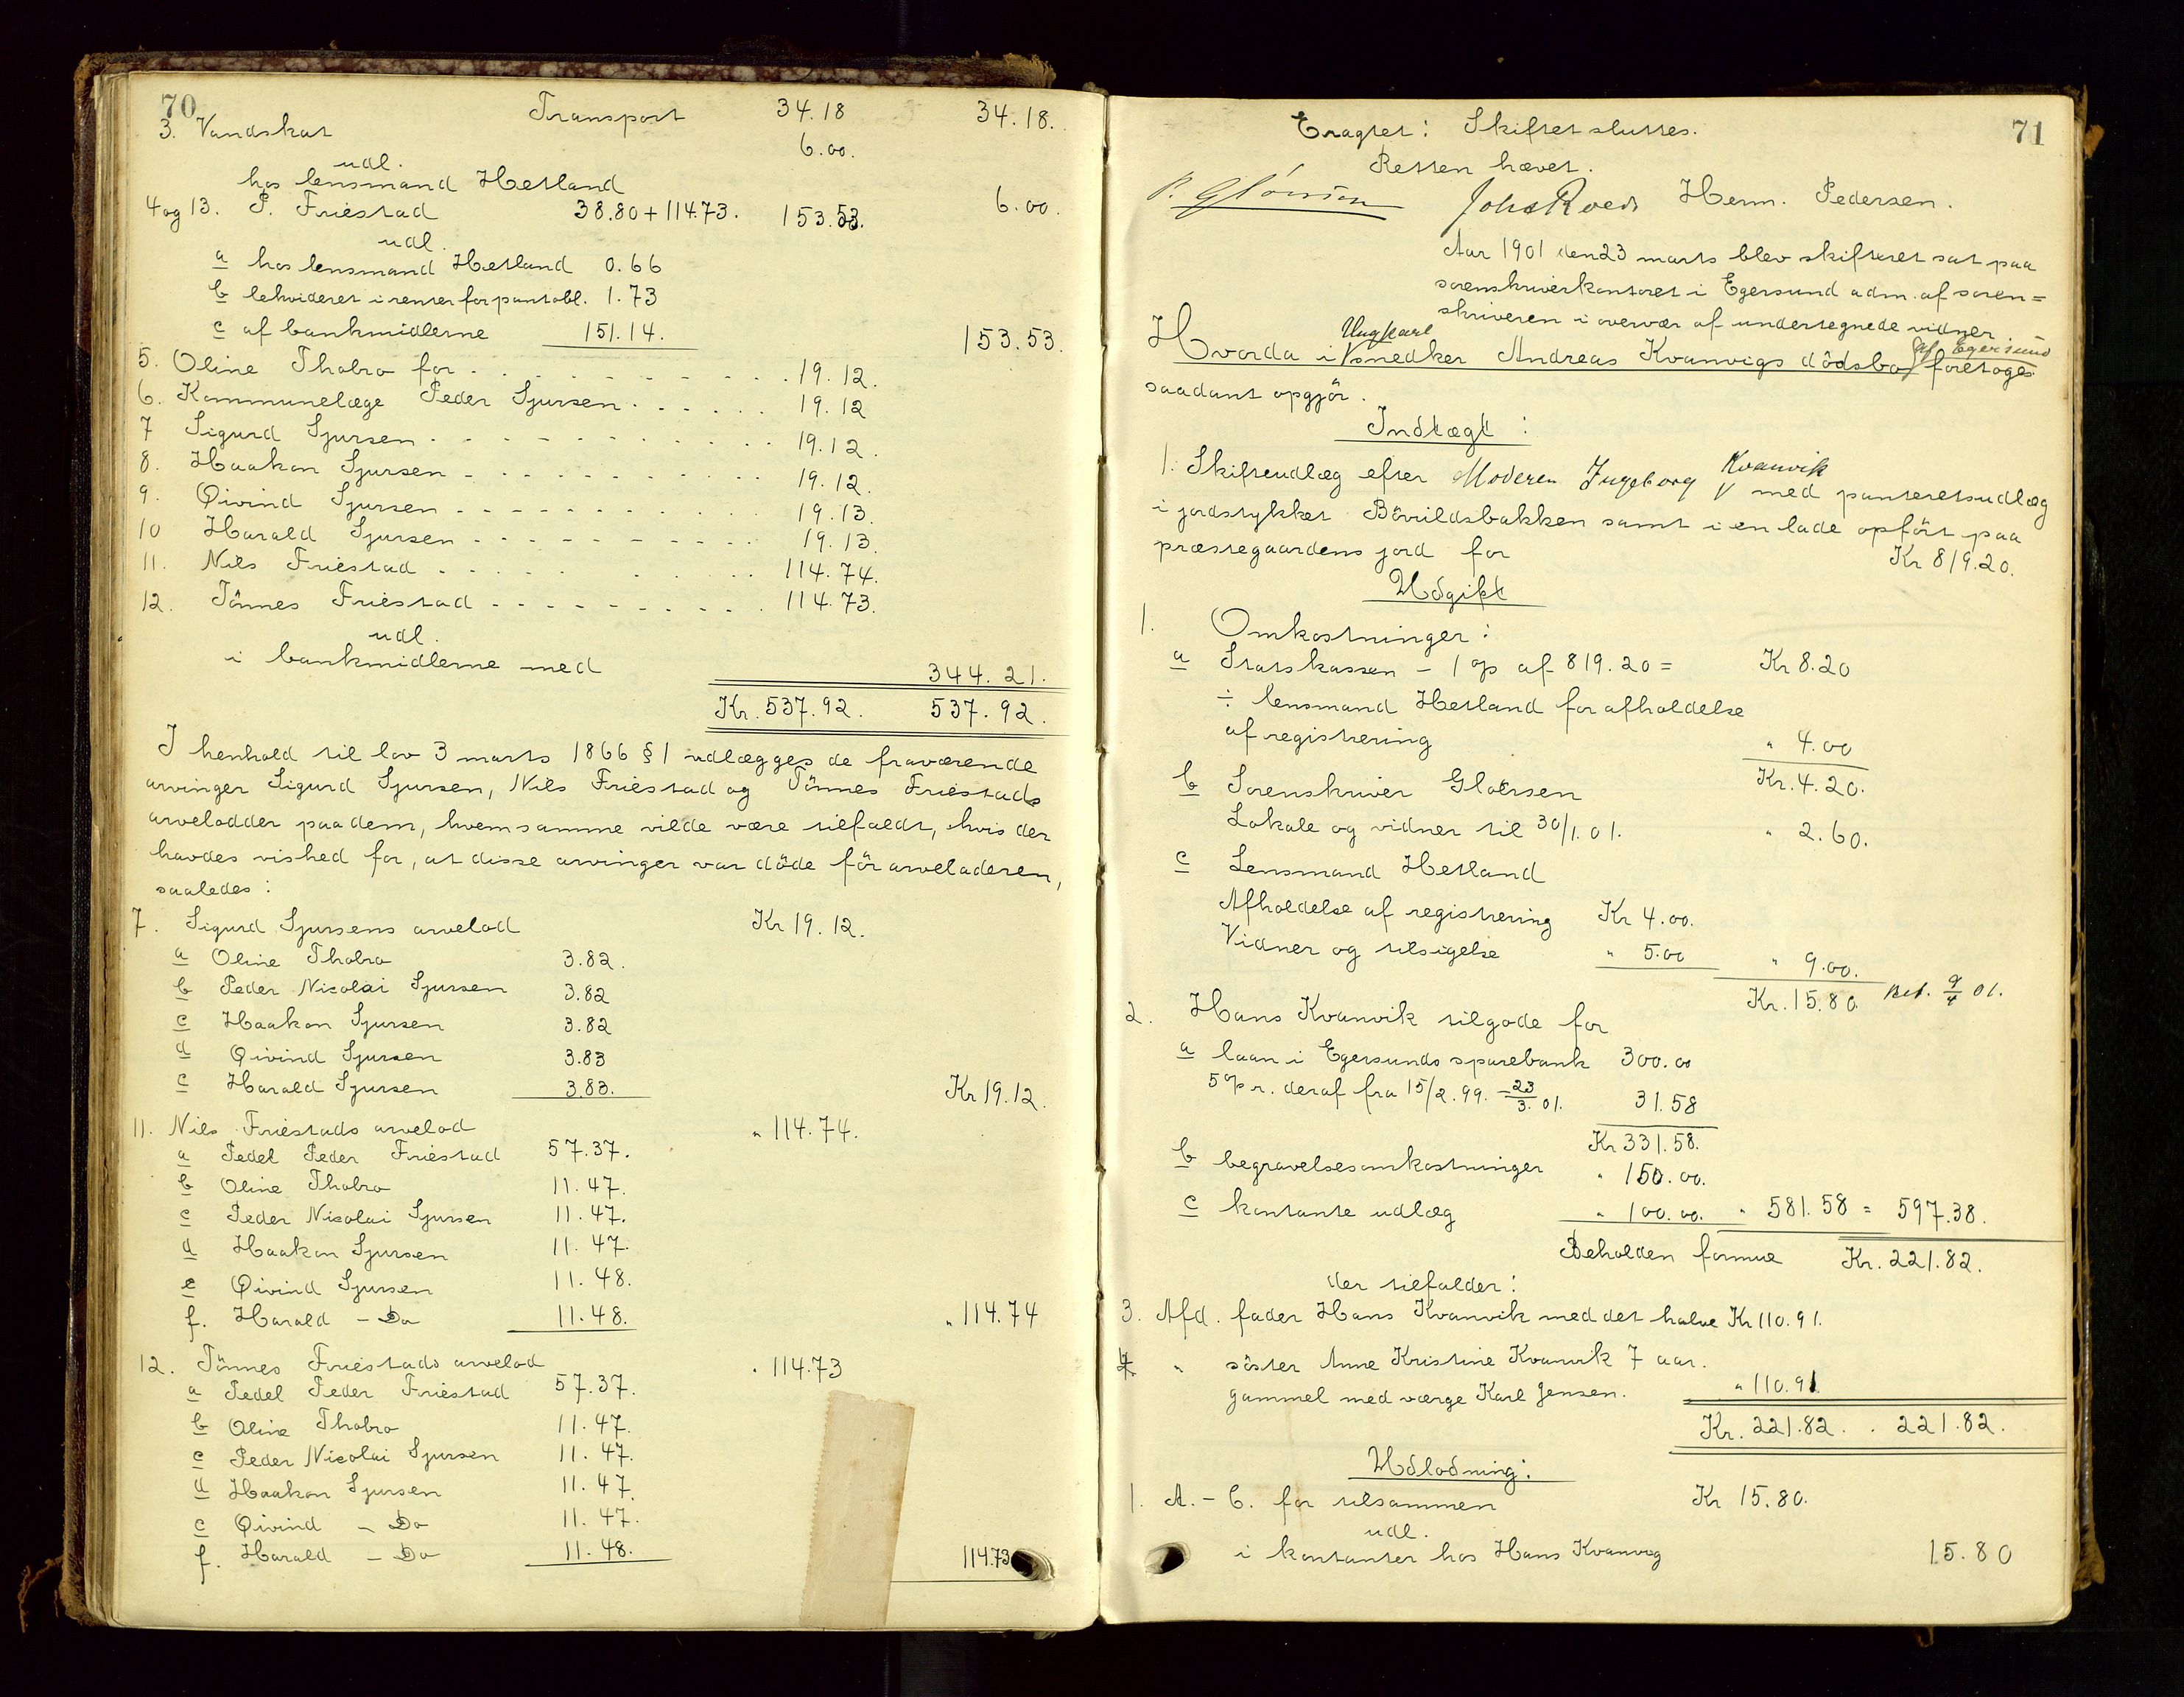 70
Transport 34.18 34.18.
3. Vandskat 6.00.
udl.
hos lensmand Hetland 6.00.
4 og 13. P. Friestad 38.80 + 114.73. 153.53.
udl.
a hos lensmand Hetland 0.66
b lekvideret i renter for pantobl. 1.73
c af bankmidlerne 151.14. 153.53.
5. Oline Thobro for 19.12.
6. Kommunelæge Peder Sjursen 19.12
7 Sigurd Sjursen 19.12.
8. Haakon Sjursen 19.12.
9. Øivind Sjursen 19.13.
10 Harald Sjursen 19.13.
11. Nils Friestad 114.74.
12. Tönnes Friestad 114.73.
udl.
i bankmidlerne med 344.21.
Kr. 537.92. 537.92.
I henhold til lov 3 marts 1866 § 1 udlægges de fraværende
arvinger Sigurd Sjursen, Nils Friestad og Tönnes Friestads
arvelodder paa dem, hvem samme vilde være tilfaldt, hvis der
havdes vished for, at disse arvinger var döde för arveladeren,
saaledes:
7. Sigurd Sjursens arvelod Kr 19.12.
a Oline Thobro 3.82.
b Peder Nicolai Sjursen 3.82
c Haakon Sjursen 3.82
d Øivind Sjursen 3.83
e Harald Sjursen 3.83. Kr 19.12.
11. Nils Friestads arvelod " 114.74.
a Pedel Peder Friestad 57.37.
b Oline Thobro 11.47.
c Peder Nicolai Sjursen 11.47.
d Haakon Sjursen 11.47.
e Øivind Sjursen 11.48.
f. Harald - Do 11.48. " 114.74
12. Tönnes Friestads arvelod " 114.73
a Pedel Peder Friestad 57.37.
b Oline Thobro 11.47.
c Peder Nicolai Sjursen 11.47.
d Haakon Sjursen 11.47.
e Øivind - Do 11.47.
f. Harald - Do 11.48. 114.73
71
Eragtet: Skiftet sluttes.
Retten hævet.
Johs Roed Herm. Pedersen.
Aar 1901 den 23 marts blev skifteret sat paa
sorenskriverkontoret i Egersund adm. af soren=
skriveren i overvær af undertegnede vidner
Hvorda i Ungkarl snedker Andreas Kvanvigs dödsbo af Egersund foretoges
saadant opgjör.
Indtægt:
1. Skifteudlæg efter Moderen Ingeborg Kvanvik med panteretsudlæg
i jordstykket Bövildsbakken samt i en lade opfört paa
præstegaardens jord for Kr 819.20.
Udgift
1. Omkostninger:
a Statskassen - 1 % af 819.20 = Kr 8.20
÷ lensmand Hetland for afholdelse
af registrering " 4.00
Kr. 4.20.
b Sorenskriver Gloërsen
Lokale og vidner til 30/1. 01. " 2.60.
c Lensmand Hetland
Afholdelse af registrering Kr 4.00.
Vidner og tilsigelse " 5.00 " 9.00.
Kr. 15.80 Bet. 9/4 01.
2. Hans Kvanvik tilgode for
a laan i Egersunds sparebank 300.00
5 % r. deraf fra 15/2.99. - 23/3. 01. 31.58
Kr 331.58.
b begravelsesomkostninger " 150.00.
c kontante udlæg " 100.00. " 581.58 = 597.38.
Beholden formue Kr. 221.82.
der tilfalder:
3. Afd. fader Hans Kvanvik med det halve Kr 110.91.
4. " söster Anne Kristine Kvanvik 7 aar.
gammel med værge Karl Jensen. " 110.91
Kr. 221.82. . 221.82.
Udlodning:
1. A. - C. for tilsammen Kr 15.80.
udl.
i kontanter hos Hans Kvanvig 15.80